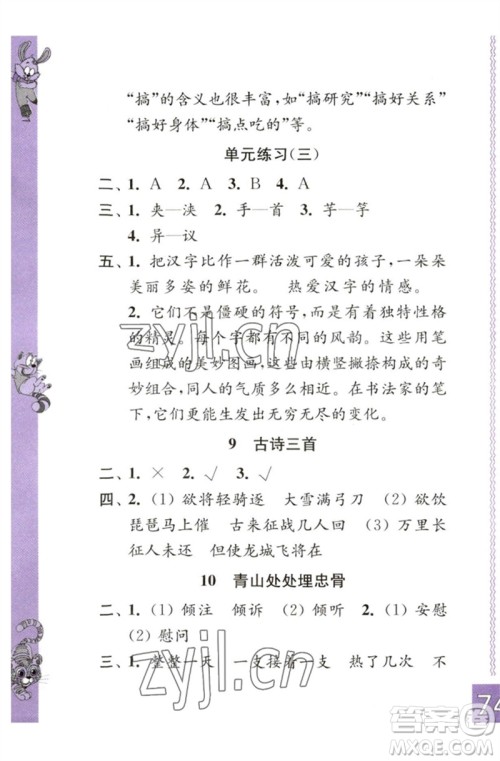 “搞”的含义也很丰富，如“搞研究”“搞好关系”
“搞好身体”“搞点吃的”等。
单元练习(三)
二、1. A  2. A  3. B  4. A
三、1. 夹—浃  2. 手—首  3. 芋—竽
4. 异—议
五、1. 把汉字比作一群活泼可爱的孩子，一朵朵
美丽多姿的鲜花。  热爱汉字的情感。
2. 它们不是僵硬的符号，而是有着独特性格
的精灵。每个字都有不同的风韵。这些用笔
画组成的美妙图画，由横竖撇捺构成的奇
妙组合，同人的气质多么相近。在书法家的笔
下，它们更生发出无穷无尽的变化。
9  古诗三首
二、1. ×  2. √  3. √
四、2. (1) 欲将轻骑逐  大雪满弓刀  (2) 欲饮
琵琶马上催  古来征战几人回  (3) 万里长
征人未还  但使龙城飞将在
10  青山处处埋忠骨
二、1. (1) 倾注  倾诉  (2) 倾听  2. (1) 安慰
(2) 慰问
三、1. 整整一天  一支接着一支  热了几次  不
zyjl.cn
zyjl.cn
答案圈
74